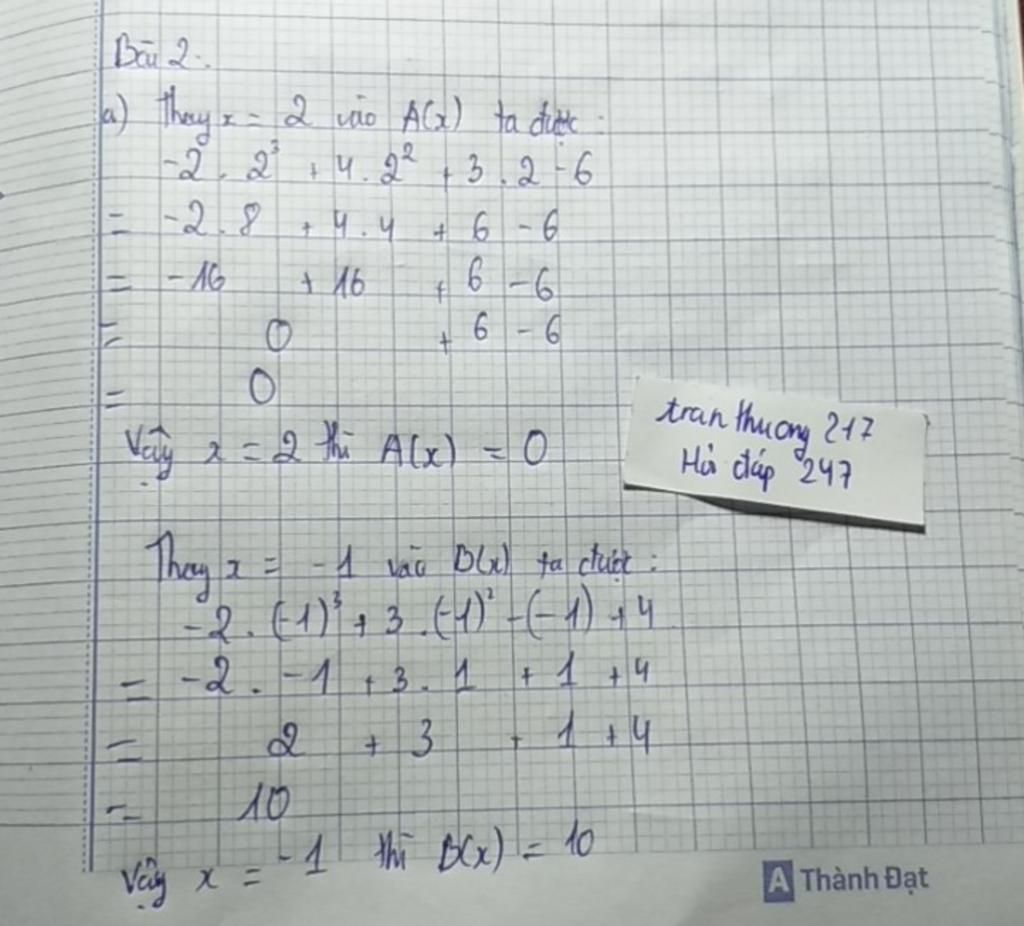 Bài 2:
a) Thay x = 2 vào A(x) ta được:
-2 . 2³ + 4 . 2² + 3 . 2 - 6
= -2 . 8 + 4 . 4 + 6 - 6
= -16 + 16 + 6 - 6
= 0 + 6 - 6
= 0
Vậy x = 2 thì A(x) = 0
tran thuong 217
Hỏi đáp 247
Thay x = -1 vào B(x) ta được:
-2 . (-1)³ + 3 . (-1)² - (-1) + 4
= -2 . -1 + 3 . 1 + 1 + 4
= 2 + 3 + 1 + 4
= 10
Vậy x = -1 thì B(x) = 10
A Thành Đạt